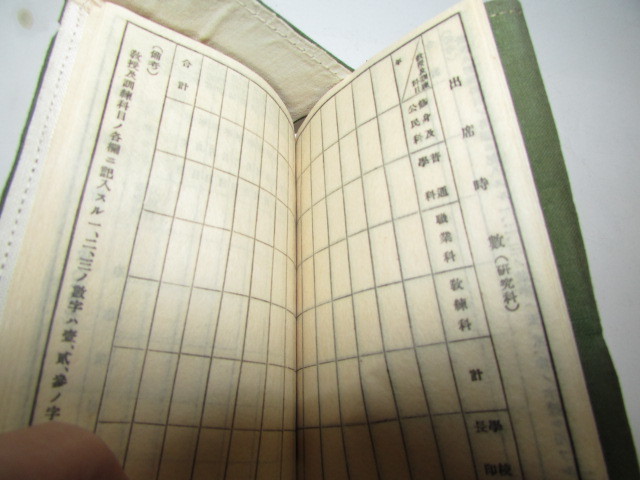 出席時數(研究科)
年
教授及訓練科目
修身及公民科
普通學科
職業科
教練科
計
學校長印
合計
(備考)
教授及訓練科目ノ各欄ニ記入スル一、二、三ノ數字ハ壹、貳、參ノ字